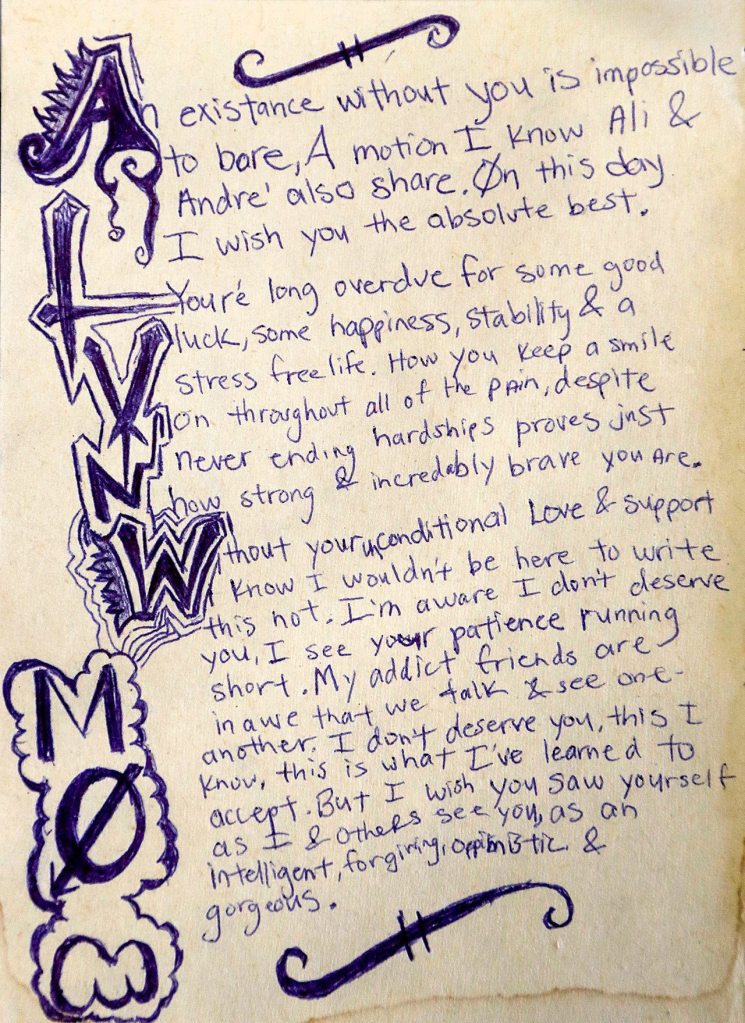 An existance without you is impossible
to bare, A motion I know Ali &
André also share. Øn this day
I wish you the absolute best.
Your'e long overdue for some good
luck, some happiness, stability & a
stress free life. How you keep a smile
on throughout all of the pain, despite
never ending hardships proves just
how strong & incredably brave you are.
Without your unconditional Love & support
I know I wouldn't be here to write
this not. I'm aware I don't deserve
you, I see your patience running
short. My addict friends are
in awe that we talk & see one-
another. I don't deserve you, this I
know, this is what I've learned to
accept. But I wish you saw yourself
as I & others see you, as an
intelligent, forgiving, & 
gorgeous.
MØM